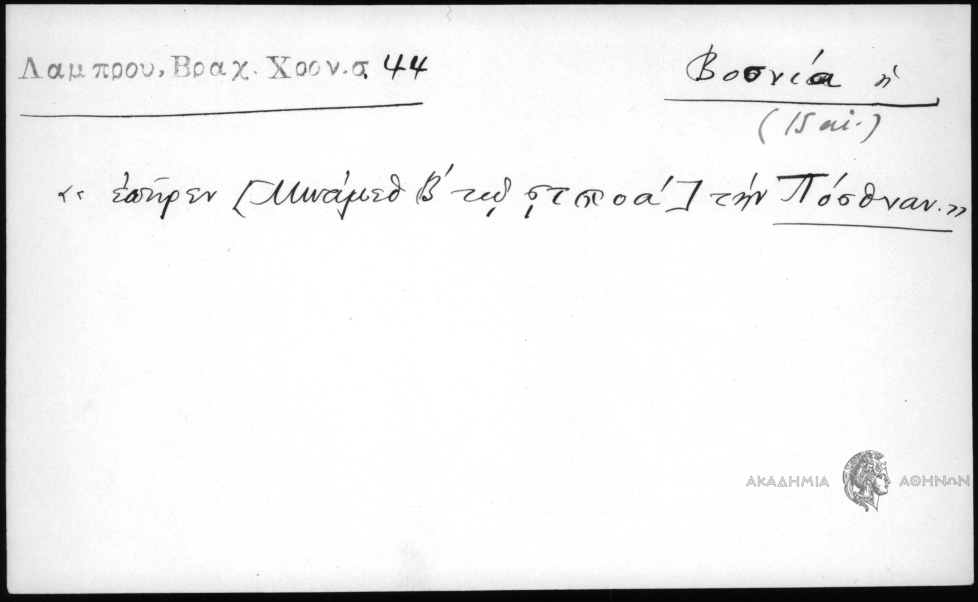 Λαμπρου, Βραχ. Χρον. σ. 44
Βοσνία ἡ
(15 αἰ.)
«ἐπῆρεν [Μωάμεθ Β' τῷ ͵ςϡοα'] τὴν Πόσθναν.»
ΑΚΑΔΗΜΙΑ ΑΘΗΝΩΝ